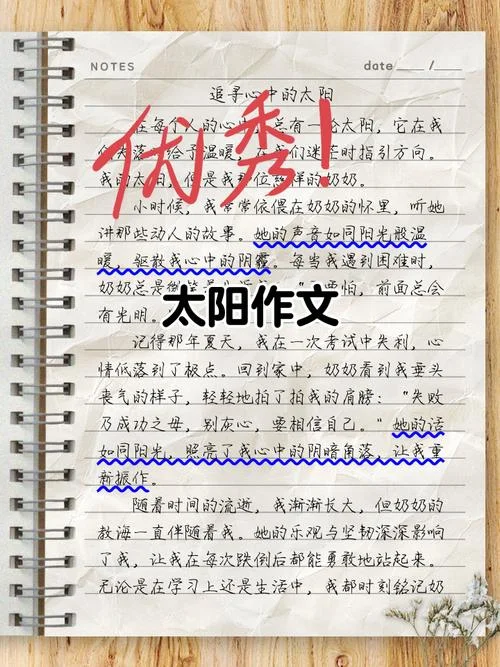 NOTES
date____/____
追寻心中的太阳
优秀!
在每个人的心中,总有一个太阳,它在我
给予温暖,在我们迷茫时指引方向。
我的太阳,便是我那位慈祥的奶奶。
小时候,我常常依偎在奶奶的怀里,听她
讲那些动人的故事。她的声音如同阳光般温
暖,驱散我心中的阴霾。每当我遇到困难时,
奶奶总是 要怕,前面总会
有光明。
太阳作文
记得那年夏天,我在一次考试中失利,心
情低落到了极点。回到家中,奶奶看到我垂头
丧气的样子,轻轻地拍了拍我的肩膀:“失败
乃成功之母,别灰心,要相信自己。”她的话
如同阳光,照亮了我心中的阴暗角落,让我重
新振作。
随着时间的流逝,我渐渐长大,但奶奶的
教诲一直伴随着我。她的乐观与坚韧深深影响
了我,让我在每次跌倒后都能勇敢地站起来。
无论是在学习上还是生活中,我都时刻铭记奶